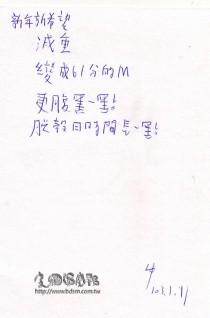 新年新希望
減重
變成61分的M
更服黑一點
脫殼日時間長一點
http://www.bdsm.com.tw
103.1.11